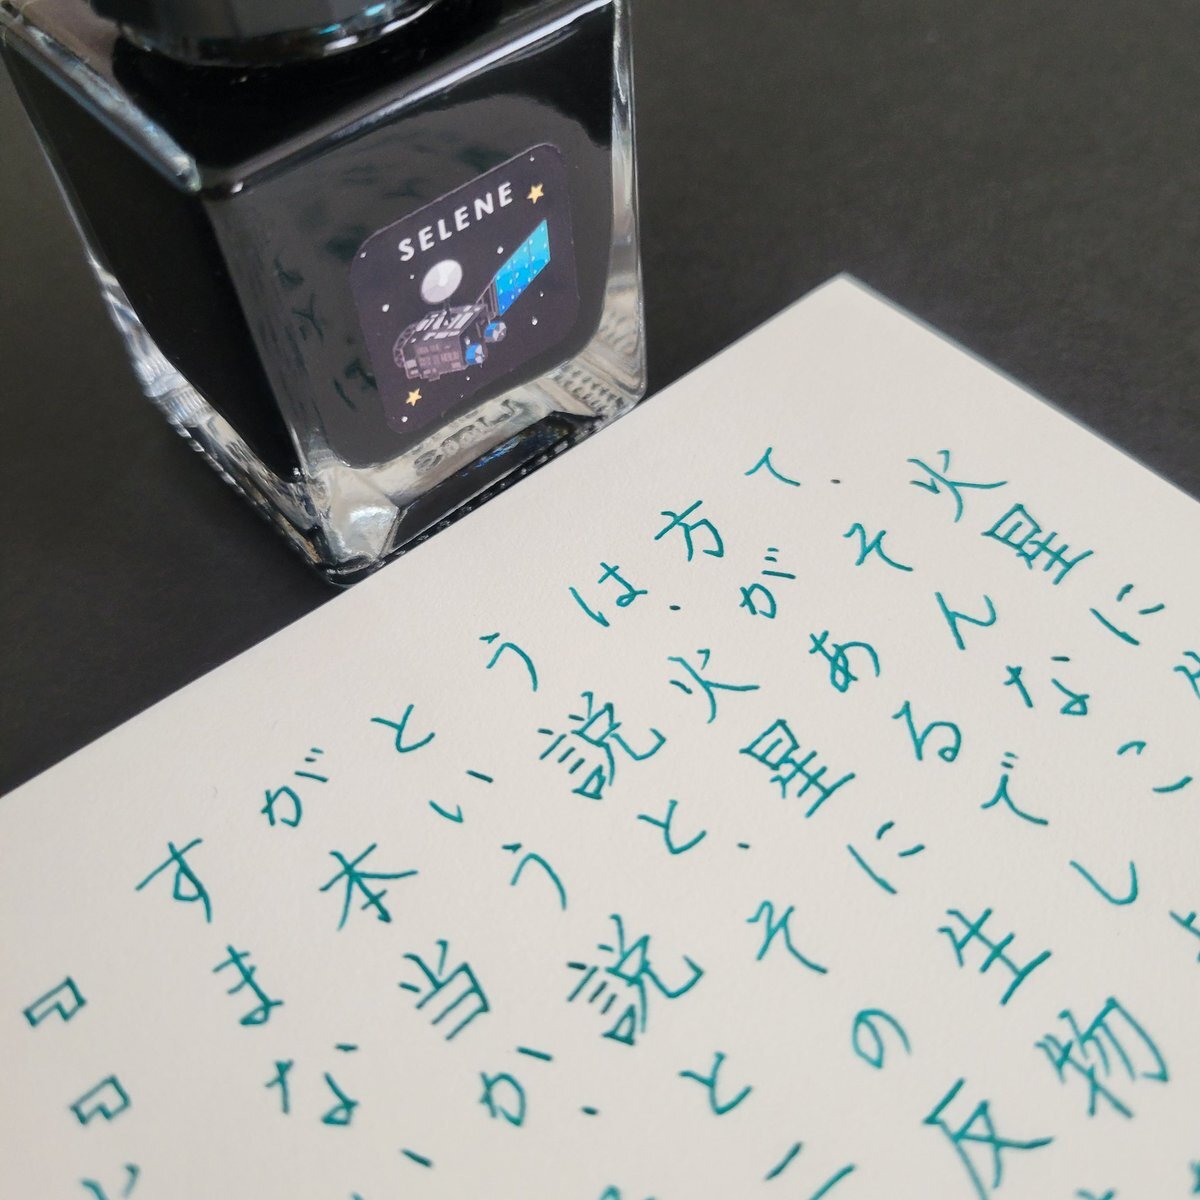 SELENE
火星に
て、そんなこ
方があるでしょ
は、火星に生物
う説と、その反
という説と二
が本当か、
すまない